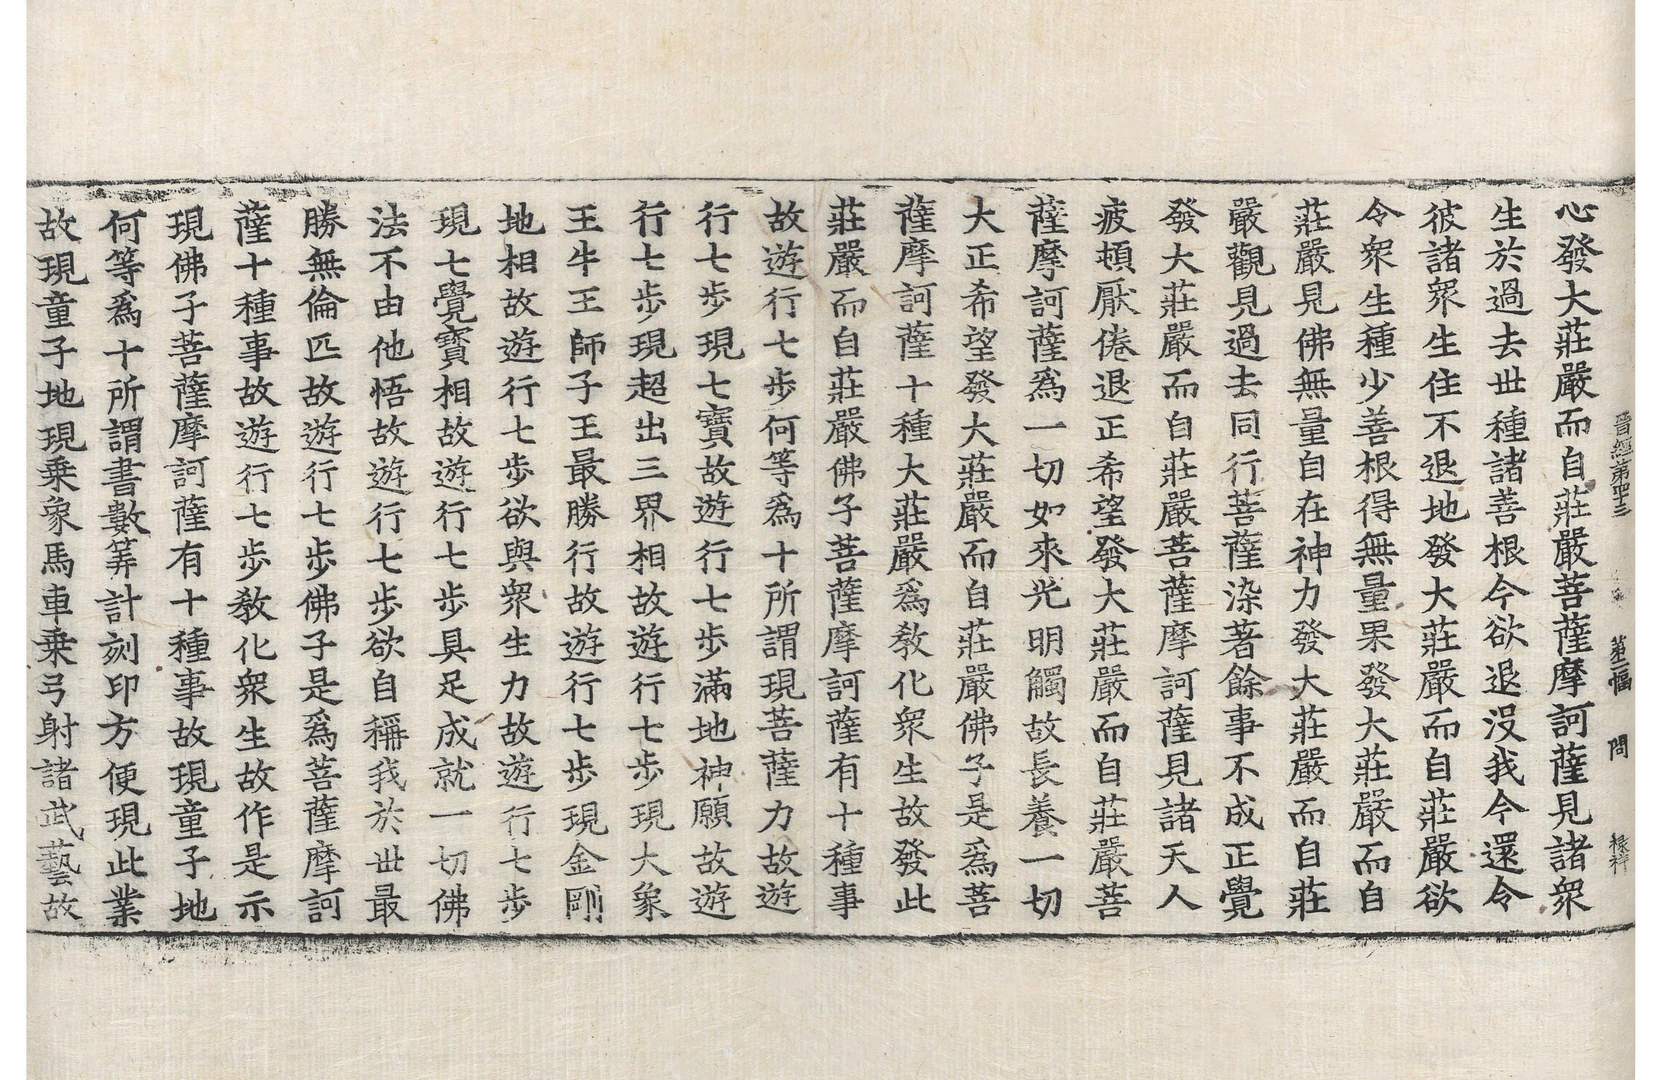 晉經第四十三 第二幅 問 祿祥
心發大莊嚴而自莊嚴菩薩摩訶薩見諸衆
生於過去世種諸善根今欲退沒我今還令
彼諸衆生住不退地發大莊嚴而自莊嚴欲
令衆生種少善根得無量果發大莊嚴而自
莊嚴見佛無量自在神力發大莊嚴而自莊
嚴觀見過去同行菩薩染著餘事不成正覺
發大莊嚴而自莊嚴菩薩摩訶薩見諸天人
疲頓厭倦退正希望發大莊嚴而自莊嚴菩
薩摩訶薩爲一切如來光明觸故長養一切
大正希望發大莊嚴而自莊嚴佛子是爲菩
薩摩訶薩十種大莊嚴爲教化衆生故發此
莊嚴而自莊嚴佛子菩薩摩訶薩有十種事
故遊行七步何等爲十所謂現菩薩力故遊
行七步現七寶故遊行七步滿地神願故遊
行七步現超出三界相故遊行七步現大象
王牛王師子王最勝行故遊行七步現金剛
地相故遊行七步欲與衆生力故遊行七步
現七覺寶相故遊行七步具足成就一切佛
法不由他悟故遊行七步欲自稱我於世最
勝無倫匹故遊行七步佛子是爲菩薩摩訶
薩十種事故遊行七步教化衆生故作是示
現佛子菩薩摩訶薩有十種事故現童子地
何等爲十所謂書數筭計刻印方便現此業
故現童子地現乗象馬車乗弓射諸武藝故